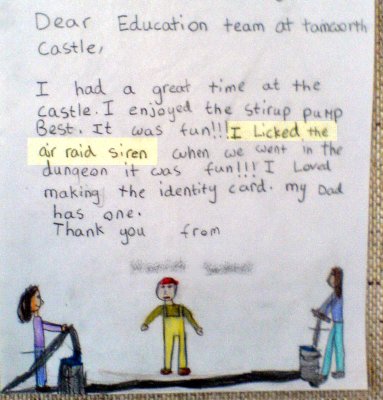 Dear Education team at tamworth
Castle,
I had a great time at the
Castle. I enjoyed the stirup pump
Best. It was fun!!! I Licked the
air raid siren when we went in the
dungeon it was fun!!! I Loved
making the identity card. my Dad
has one.
Thank you from